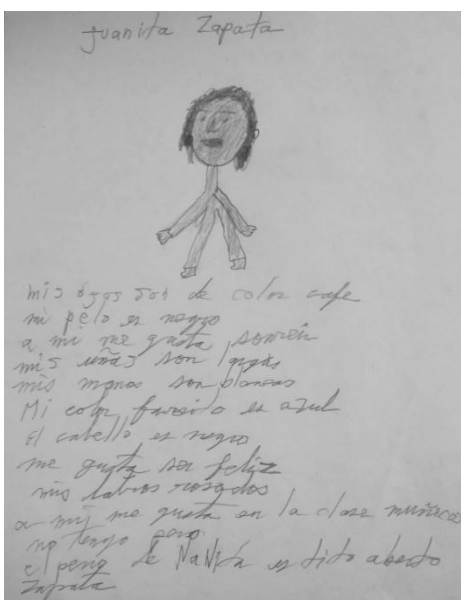 Juanita Zapata
mis ojos son de color cafe
mi pelo es negro
a mi me gusta sonreir
mis uñas son largas
mis manos son blancas
Mi color es azul
El cabello es negro
me gusta ser feliz
mis labios rosados
a mi me gusta en la clase muñecas
no tengo pero
el de es tito
Zapata